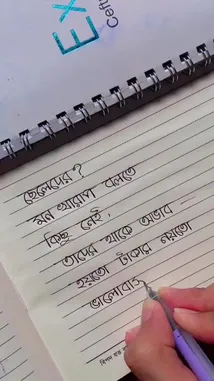 Ex
Ceft
ছেলেদের?
মন খারাপ বলতে
কিছু নেই,
তাদের থাকে অভাব —
হয়তো টাকার নয়তো
ভালোবাস